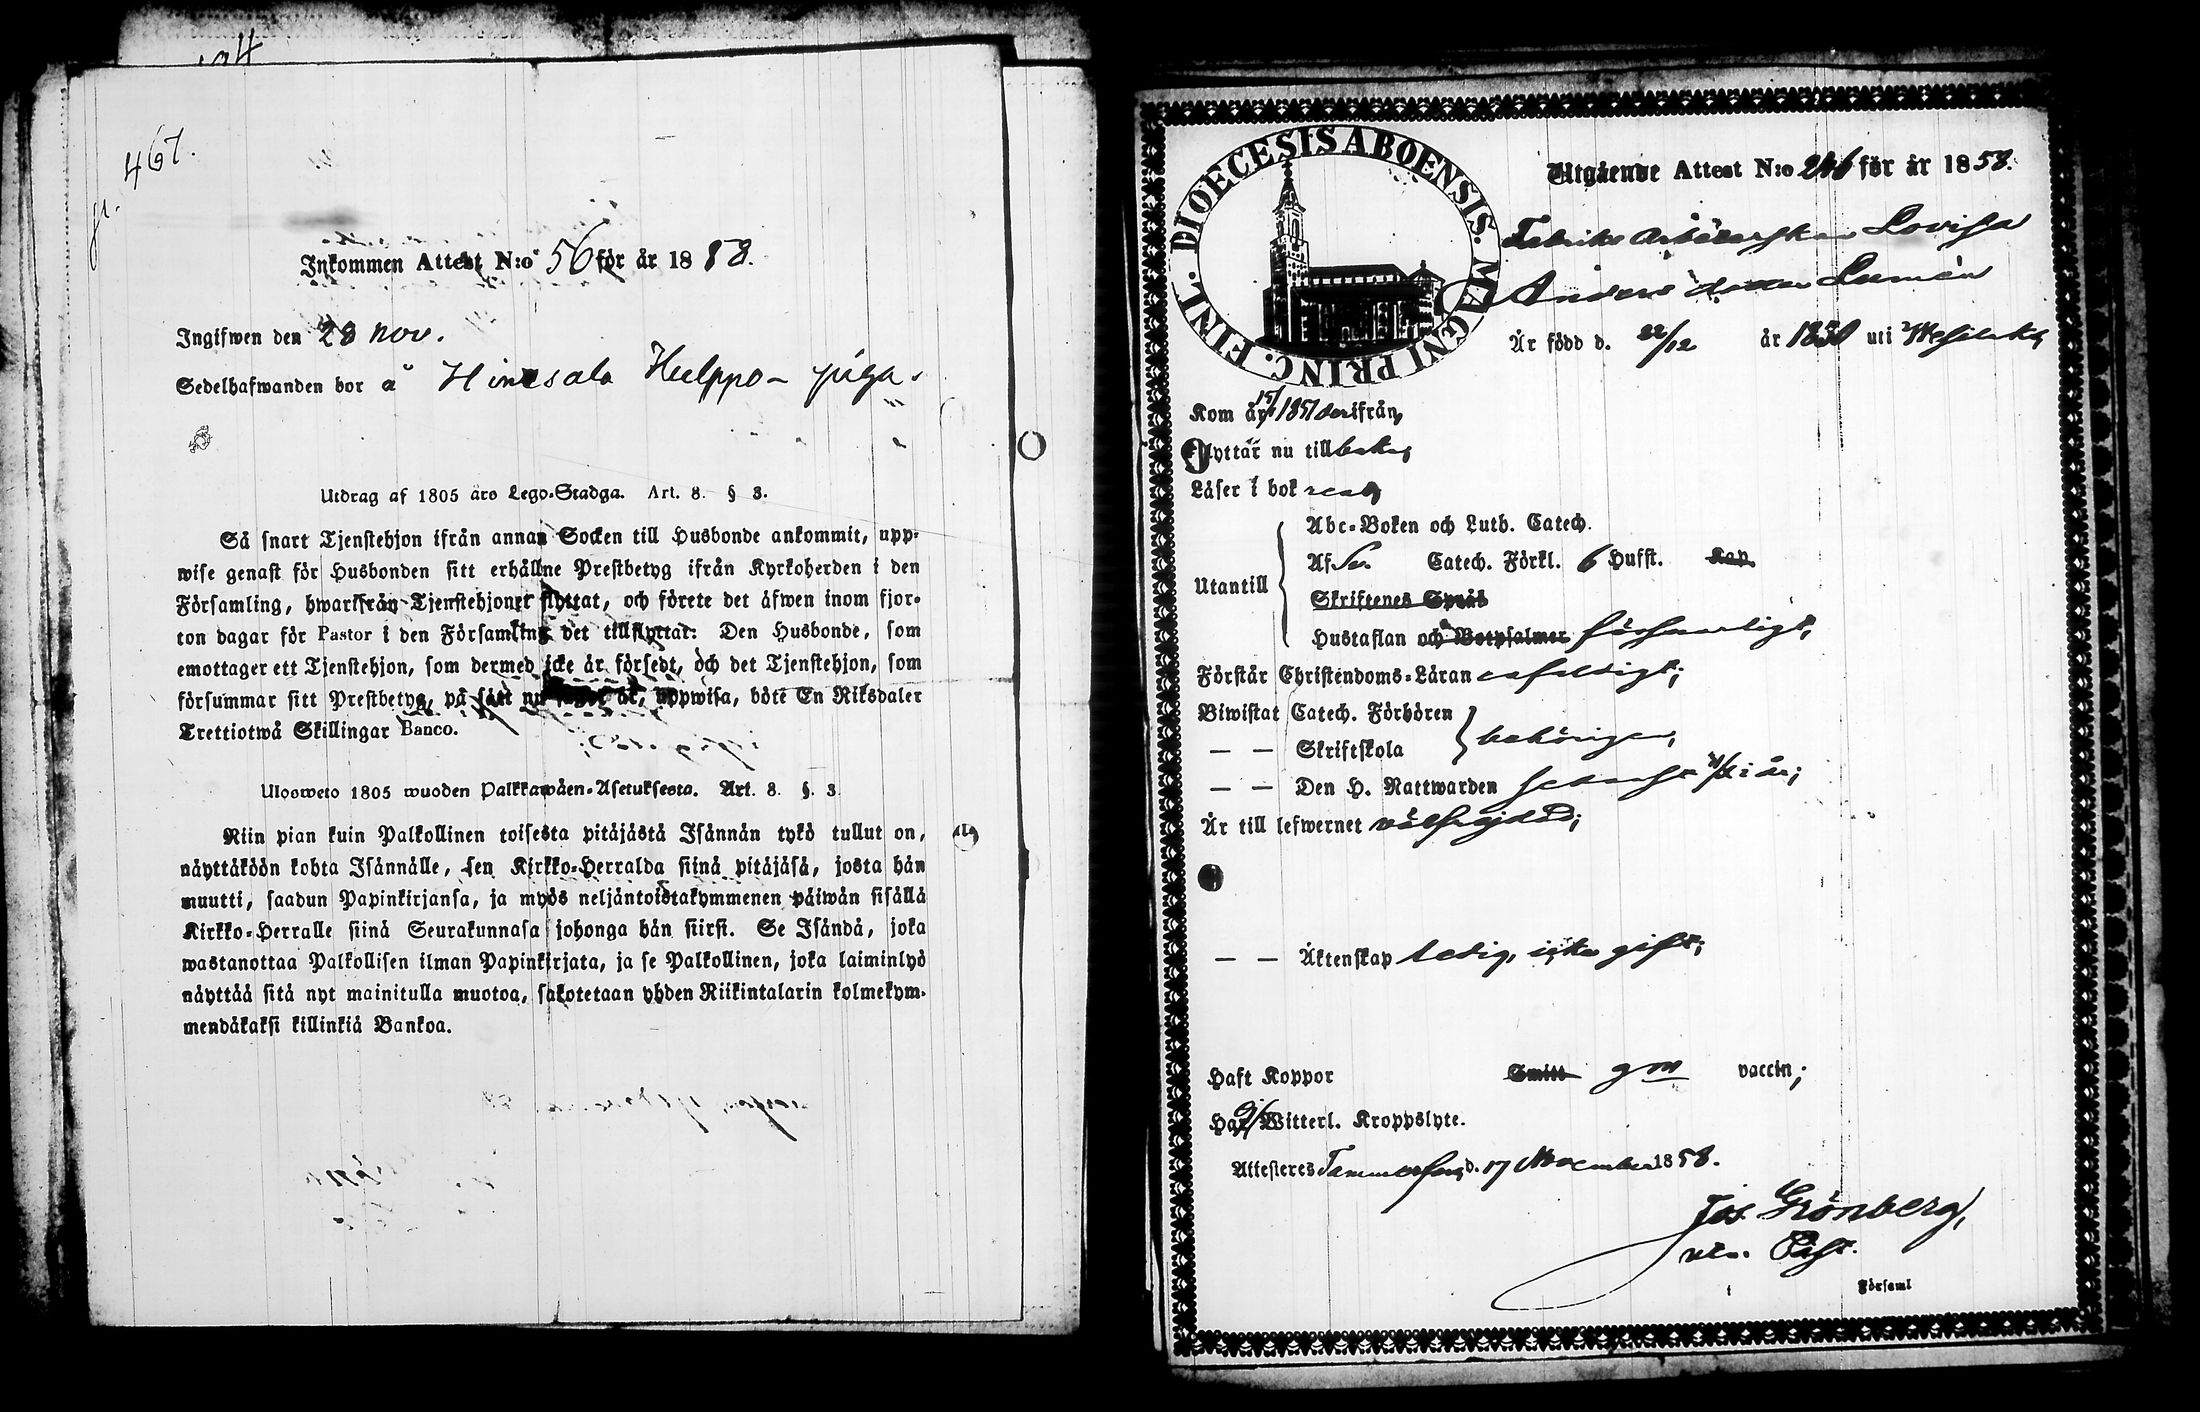 467.
Inkommen Attest N:o 56 för år 1858.
Ingifwen den 28 nov.
Sedelhafwanden bor å Hinsala Hulppo- piga.
Utdrag af 1805 års Lego-Stadga. Art. 8. § 3.
Så snart Tjenstehjon ifrån annan Socken till Husbonde ankommit, upp-
wise genast för Husbonden sitt erhållne Prestbetyg ifrån Kyrkoherden i den
Församling, hwarifrån Tjenstehjonet flyttat, och förete det äfwen inom fjor-
ton dagar för Pastor i den Församling det tillflyttat: Den Husbonde, som
emottager ett Tjenstehjon, som dermed icke är försedt, och det Tjenstehjon, som
försummar sitt Prestbetyg, på sätt nu sagdt är, uppwisa, böte En Riksdaler
Trettiotwå Skillingar Banco.
Ulosweto 1805 wuoden Palkkawäen-Asetuksesta. Art. 8. §. 3.
Niin pian kuin Palkollinen toisesta pitäjästä Isännän tykö tullut on,
näyttäköön kohta Isännälle, sen Kirkko-Herralda siinä pitäjäsä, josta hän
muutti, saadun Papinkirjansa, ja myös neljäntoistakymmenen päiwän sisällä
Kirkko-Herralle siinä Seurakunnasa johonga hän siirsi. Se Isändä, joka
wastanottaa Palkollisen ilman Papinkirjata, ja se Palkollinen, joka laiminlyö
näyttää sitä nyt mainitulla muotoa, sakotetaan yhden Riikintalarin kolmekym-
mendäkaksi killinkiä Bankoa.
DIOECESIS ABOENSIS. MAGNI PRINC. FINL.
Utgående Attest N:o 246 för år 1858.
Fabriks Arbeterskan Lovisa
Anders dotter Lumén
Är född d. 22/12 år 1830 uti Messuby
Kom år 1851 derifrån,
Flyttar nu tillbaka,
Läser i bok
Utantill
Abc-Boken och Luth. Catech.
Af Sv. Catech. Förkl. 6 Hufst. Kap.
Skriftenes Språk
Hustaflan och Botpsalmer försvarligt,
Förstår Christendoms-Läran enfaldigt;
Biwistat Catech. Förhören
— — Skriftskola behörigen,
— — Den H. Nattwarden senast i år;
Är till lefwernet välfrejdad;
— — Äktenskap ledig, icke gift;
Haft Koppor Smitt gm vaccin;
Har Witterl. Kroppslyte.
Attesteres Tammerfors d. 17 November 1858.
Jos. Grönberg,
vic. Past.
i Församl